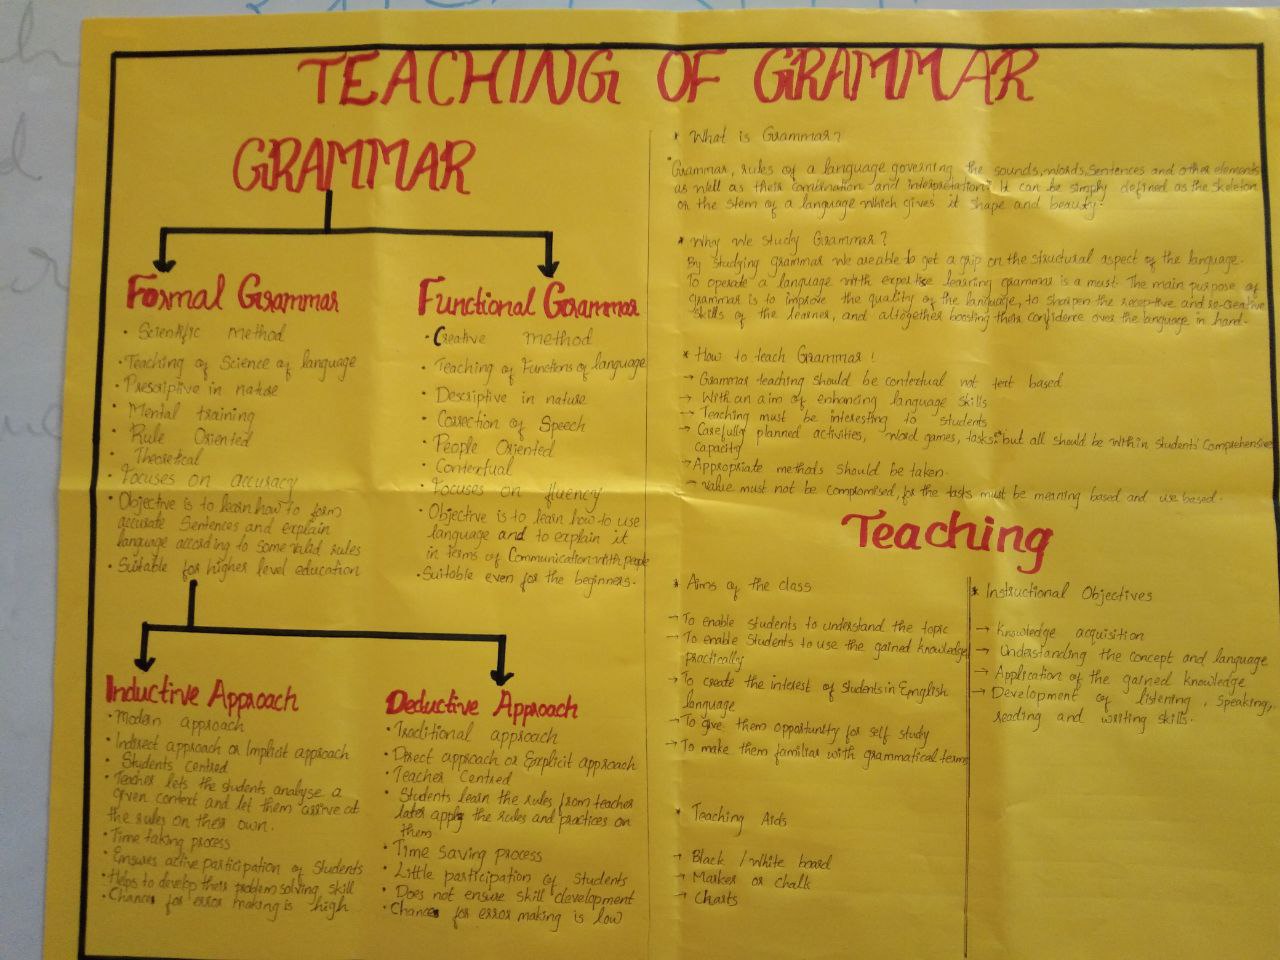 TEACHING OF GRAMMAR
GRAMMAR
Formal Grammar
• Scientific method
• Teaching of Science of language
• Prescriptive in nature
• Mental training
• Rule Oriented
• Theoretical
• Focuses on accuracy
• Objective is to learn how to form
accurate Sentences and explain
language according to some valid rules
• Suitable for higher level education
Functional Grammar
• Creative method
• Teaching of Functions of language
• Descriptive in nature
• Correction of Speech
• People Oriented
• Contextual
• Focuses on fluency
• Objective is to learn how to use
language and to explain it
in terms of Communication with people
• Suitable even for the beginners.
Inductive Approach
• Modern approach
• Indirect approach or Implicit approach
• Students Centred
• Teacher lets the students analyse a
given context and let them arrive at
the rules on their own.
• Time taking process
• Ensures active participation of students
• Helps to develop their problem solving skill
• Chances for error making is high
Deductive Approach
• Traditional approach
• Direct approach or Explicit approach
• Teacher Centred
• Students learn the rules from teacher
later apply the rules and practices on
them.
• Time saving process
• Little participation of students
• Does not ensure skill development
• Chances for error making is low
* What is Grammar?
"Grammar, rules of a language governing the sounds, words, sentences and other elements
as well as their combination and interpretation." It can be simply defined as the skeleton
or the stem of a language which gives it shape and beauty.
* Why we study Grammar?
By studying grammar we are able to get a grip on the structural aspect of the language.
To operate a language with expertise learning grammar is a must. The main purpose of
grammar is to improve the quality of the language, to sharpen the receptive and re-creative
skills of the learner, and altogether boosting their confidence over the language in hand.
* How to teach Grammar!
→ Grammar teaching should be contextual not text based
→ With an aim of enhancing language skills
→ Teaching must be interesting to students
→ Carefully planned activities, word games, tasks. but all should be within students' Comprehensive
capacity
→ Appropriate methods should be taken.
→ Value must not be compromised, for the tasks must be meaning based and use based.
Teaching
* Aims of the class
→ To enable students to understand the topic
→ To enable Students to use the gained knowledge
practically
→ To create the interest of students in English
language
→ To give them opportunity for self study
→ To make them familiar with grammatical terms
* Teaching Aids
→ Black / White board
→ Marker or chalk
→ Charts
* Instructional Objectives
→ Knowledge acquisition
→ Understanding the concept and language
→ Application of the gained knowledge
→ Development of listening, speaking,
reading and writing skills.